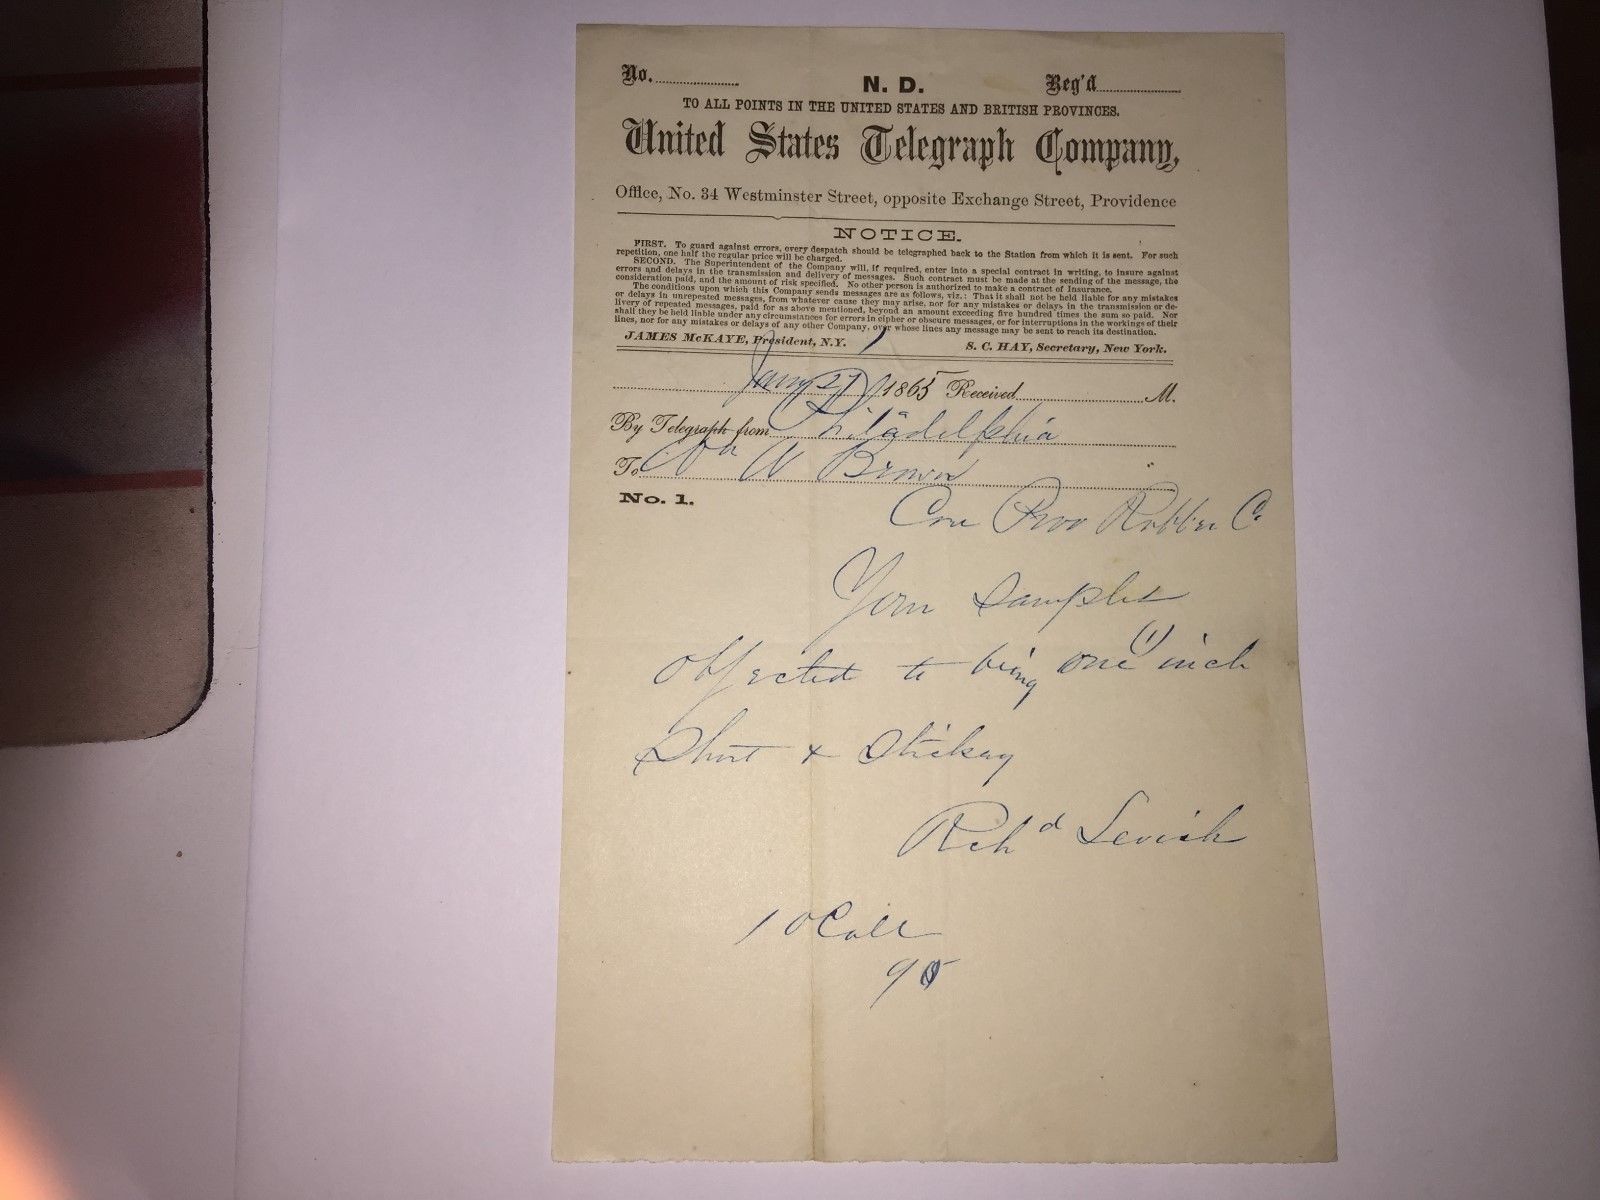 No. N. D. Reg'd
TO ALL POINTS IN THE UNITED STATES AND BRITISH PROVINCES.
United States Telegraph Company,
Office, No. 34 Westminster Street, opposite Exchange Street, Providence
NOTICE.
FIRST. To guard against errors, every despatch should be telegraphed back to the Station from which it is sent. For such
repetition, one half the regular price will be charged.
SECOND. The Superintendent of the Company will, if required, enter into a special contract in writing, to insure against
errors and delays in the transmission and delivery of messages. Such contract must be made at the sending of the message, the
consideration paid, and the amount of risk specified. No other person is authorized to make a contract of Insurance.
The conditions upon which this Company sends messages are as follows, viz.: That it shall not be held liable for any mistakes
or delays in unrepeated messages, from whatever cause they may arise, nor for any mistakes or delays in the transmission or de-
livery of repeated messages, paid for as above mentioned, beyond an amount exceeding five hundred times the sum so paid. Nor
shall they be held liable under any circumstances for errors in cipher or obscure messages, or for interruptions in the workings of their
lines, nor for any mistakes or delays of any other Company, over whose lines any message may be sent to reach its destination.
JAMES McKAYE, President, N.Y. S. C. HAY, Secretary, New York.
Jany 27 1865 Received M.
By Telegraph from Philadelphia
To Wm W Brown
No. 1.
Care Prov Rubber Co
Your Samples
objected to being one (1) inch
Short & Stickey
Rchd Levick
10 Coll
90